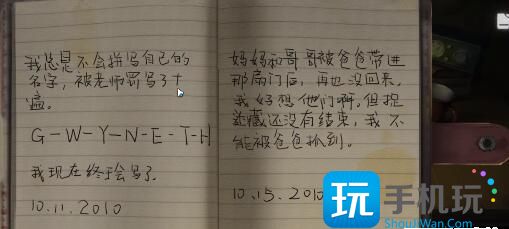 我总是不会拼写自己的
名字，被老师罚写了十
遍。
G-W-Y-N-E-T-H
我现在终于会写了。
10.11.2010
妈妈和哥哥被爸爸带进
那扇门后，再也没回来。
我好想他们啊。但捉
迷藏还没有结束，我不
能被爸爸抓到。
10.15.2010
玩 手机玩
ShouJiWan.Com